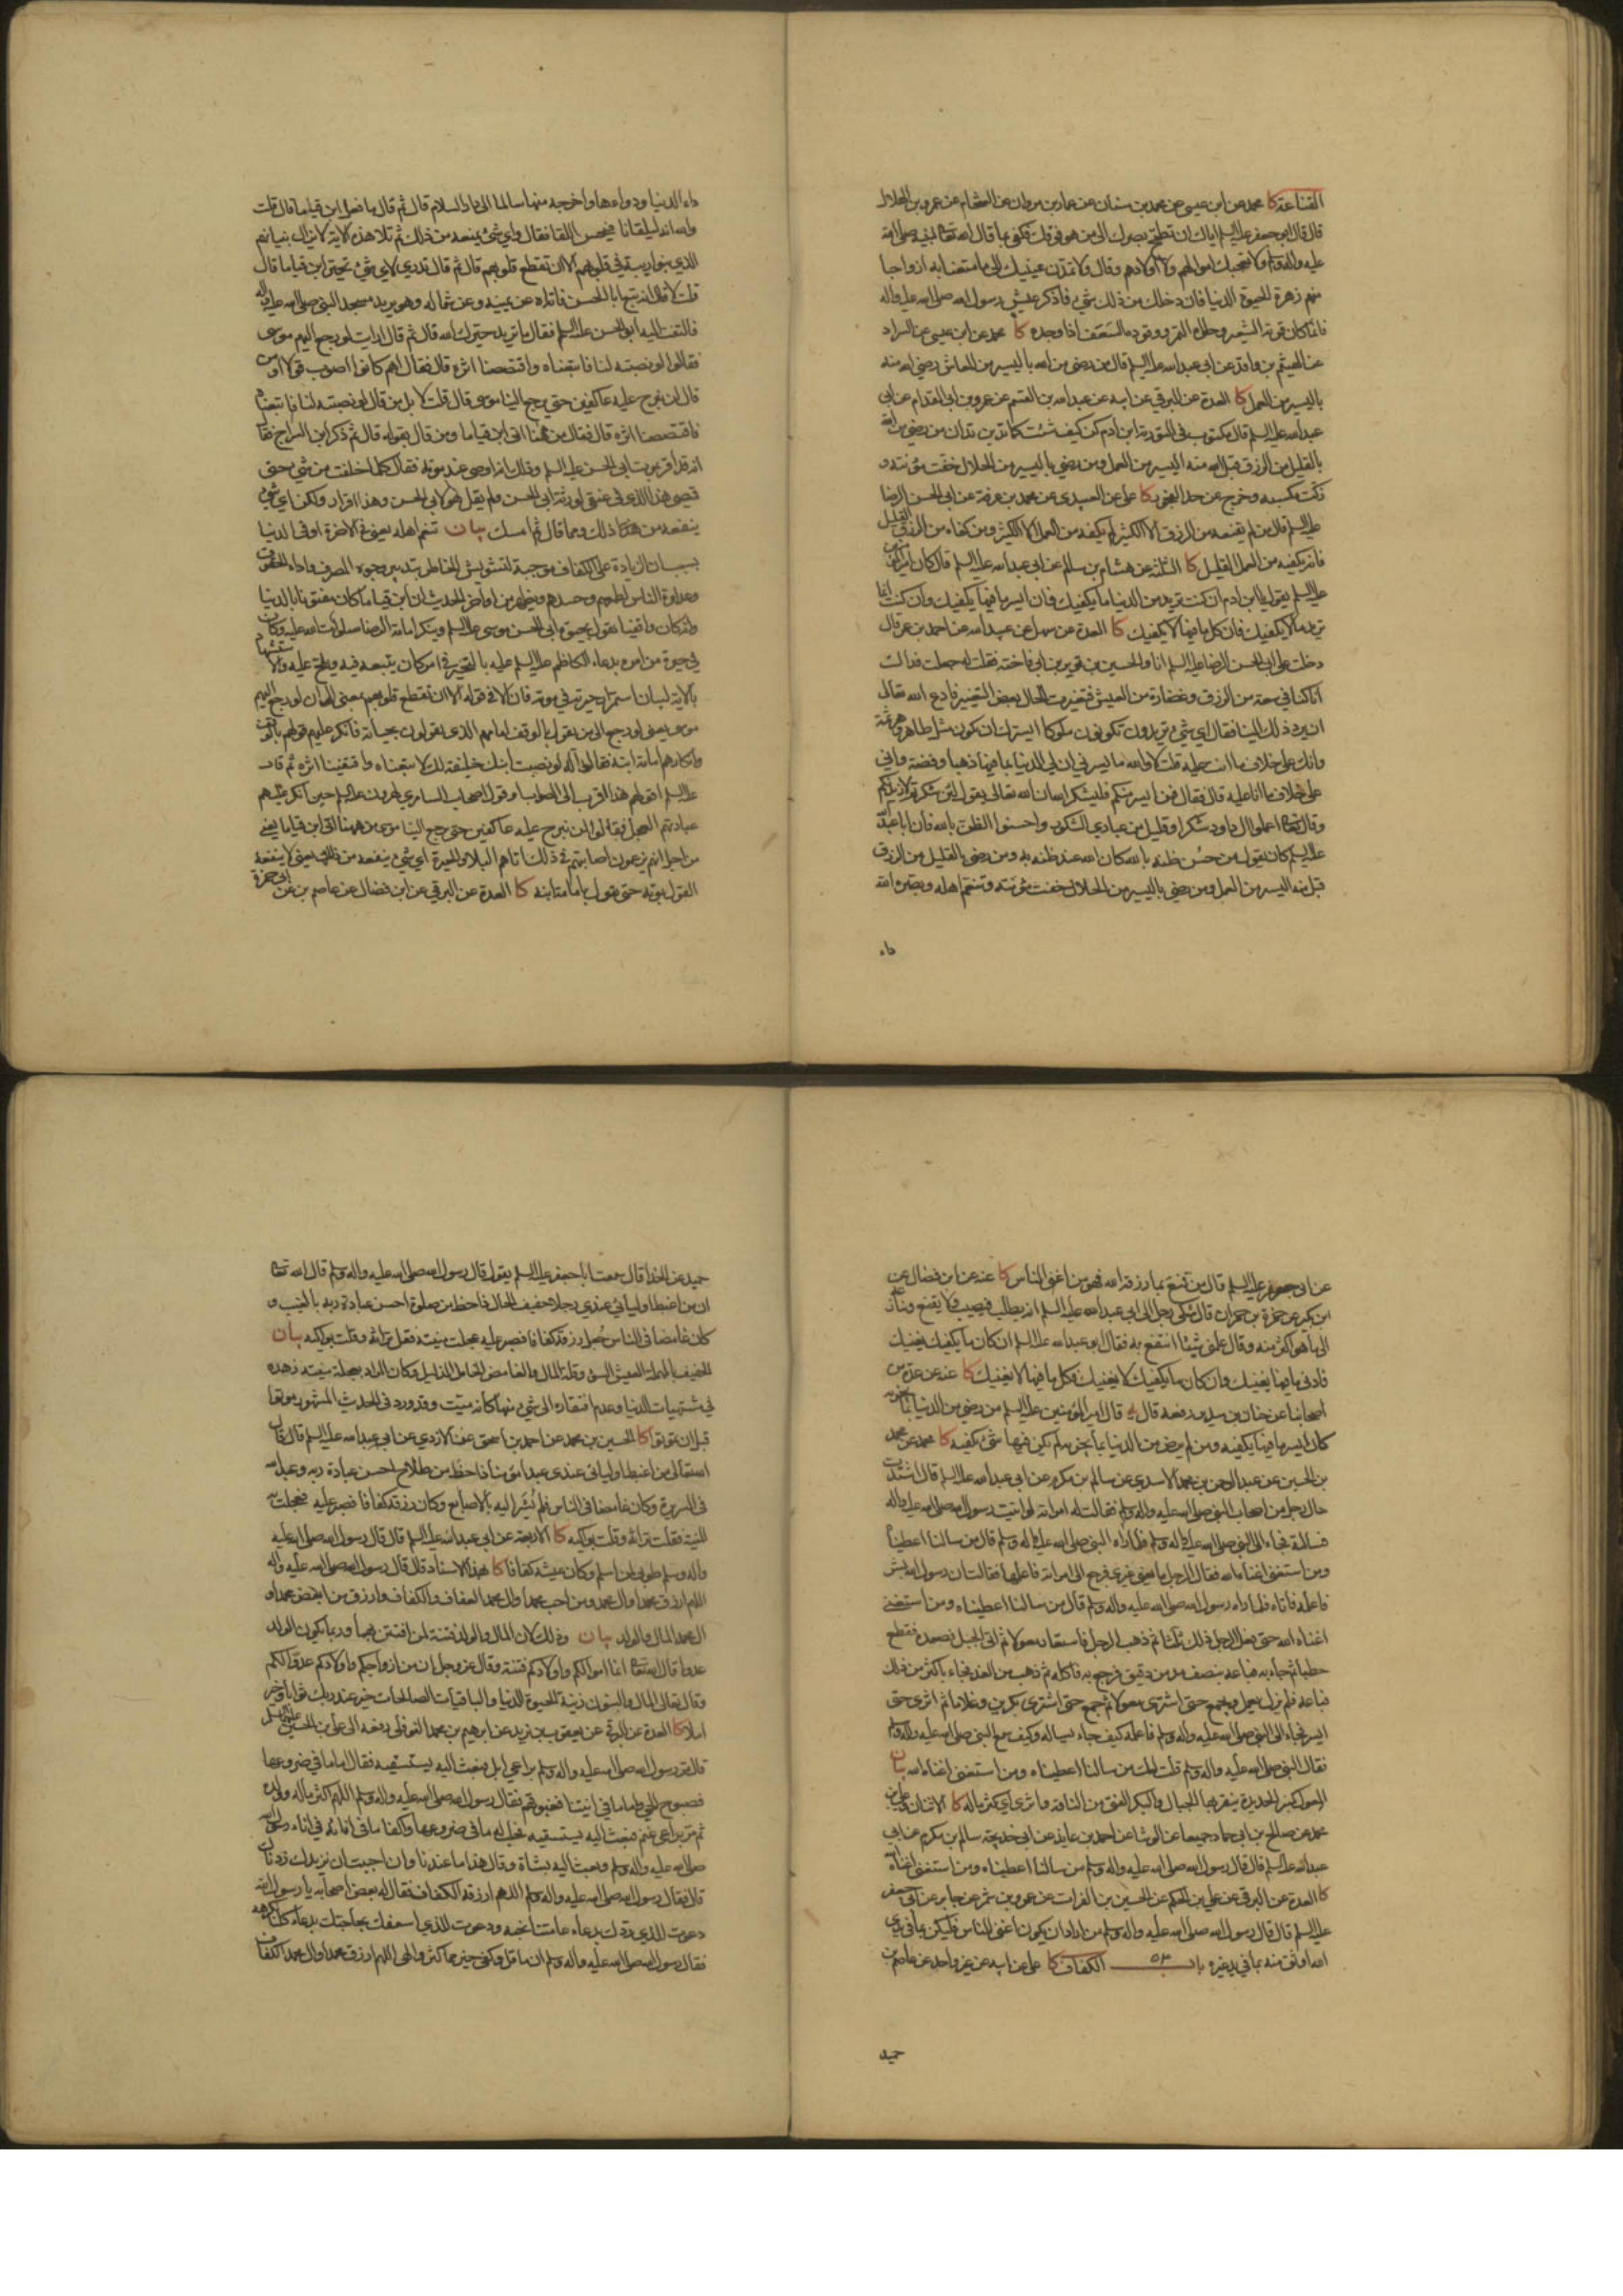 القناعة كا محمد عن ابن عيسى عن محمد بن سنان عن عمار بن مروان عن الشحام عن عمرو بن هلال
قال قال ابو جعفر عليه السلم اياك ان تطمح بصرك الى من هو فوقك فكفى بما قال الله تعالى لنبيه صلى الله
عليه واله وسلم ولا تعجبك اموالهم ولا اولادهم وقال ولا تمدن عينيك الى ما متعنا به ازواجا
منهم زهرة الحيوة الدنيا فان دخلك من ذلك شيء فاذكر عيش رسول الله صلى الله عليه واله
فانما كان قوته الشعير وحلواه التمر ووقوده السعف اذا وجده كا محمد عن ابن عيسى عن السراد
عن الهيثم بن واقد عن ابي عبد الله عليه السلم قال من رضي من الله باليسير من المعاش رضي الله منه
باليسير من العمل كا العدة عن البرقي عن ابيه عن عبد الله بن القسم عن عمرو بن ابي المقدام عن ابي
عبد الله عليه السلم قال مكتوب في التورية ابن ادم كن كيف شئت كما تدين تدان من رضي من الله
بالقليل من الرزق قبل الله منه اليسير من العمل ومن رضي باليسير من الحلال خفت مؤنته و
زكت مكسبه وخرج عن حد الفجور كا علي عن العبيدي عن محمد بن عرفة عن ابي الحسن الرضا
عليه السلم قال من لم يقنعه من الرزق الا الكثير لم يكفه من العمل الا الكثير ومن كفاه من الرزق القليل
فانه يكفيه من العمل القليل كا الثلثة عن هشام بن سالم عن ابي عبد الله عليه السلم قال كان امير المؤمنين
عليه السلم يقول يا ابن ادم ان كنت تريد من الدنيا ما يكفيك فان ايسر ما فيها يكفيك وان كنت انما
تريد ما لا يكفيك فان كل ما فيها لا يكفيك كا العدة عن سهل عن عبيد الله عن احمد بن عمر قال
دخلت على ابي الحسن الرضا عليه السلم انا والحسين بن ثوير بن ابي فاختة فقلت له جعلت فداك
انا كنا في سعة من الرزق وغضارة من العيش فتغيرت الحال بعض التغيير فادع الله تعالى
ان يرد ذلك الينا فقال اي شيء تريدون تكونون ملوكا ايسرك ان تكون مثل طاهر وهرثمة
وانك على خلاف ما انت عليه قلت لا والله ما يسرني ان لي الدنيا بما فيها ذهبا وفضة واني
على خلاف ما انا عليه قال فقال فمن ايسر منكم فليشكر الله ان الله تعالى يقول لئن شكرتم لازيدنكم
وقال تعالى اعملوا ال داود شكرا وقليل من عبادي الشكور واحسنوا الظن بالله فان ابا عبد الله
عليه السلم كان يقول من حسن ظنه بالله كان الله عند ظنه به ومن رضي بالقليل من الرزق
قبل منه اليسير من العمل ومن رضي باليسير من الحلال خفت مؤنته وتنعم اهله وبصره الله
داء
داء الدنيا ودواءها واخرجه منها سالما الى دار السلام قال ثم قال ما فعل ابن قياما قال قلت
والله انه ليلقانا فيحسن اللقاء فقال واي شيء يمنعه من ذلك ثم تلا هذه الاية لا يزال بنيانهم
الذي بنوا ريبة في قلوبهم الا ان تقطع قلوبهم قال ثم قال تدري لاي شيء تحير ابن قياما قال
قلت لا قال انه تبع ابا الحسن فاتاه عن يمينه وعن شماله وهو يريد مسجد النبي صلى الله عليه واله
فالتفت اليه ابو الحسن عليه السلم فقال ما تريد حيرك الله قال ثم قال ارايت لو رجع اليهم موسى
فقالوا لو نصبته لنا فاتبعناه واقتصصنا اثره قال فقال اهم كانوا اصوب قولا او من
قال لن نبرح عليه عاكفين حتى يرجع الينا موسى قال قلت لا بل من قال لو نصبته لنا فاتبعناه
فاقتصصنا اثره قال فقال من ههنا اتى ابن قياما ومن قال بقوله قال ثم ذكر ابن السراج فقال
انه قد اقر بموت ابي الحسن عليه السلم وذلك انه اوصى عند موته فقال كلما خلفت من شيء حتى
قميصي هذا الذي في عنقي لورثة ابي الحسن ولم يقل هو لابي الحسن وهذا اقرار ولكن اي شيء
ينفعه من ذلك ومما قال ثم امسك بيان تنعم اهله يعني في الاخرة او في الدنيا
بسبب ان الزيادة على الكفاف موجبة لتشويش الخاطر بتدبير وجوه المصرف واداء الحقوق
وعداوة الناس لطمعهم وحسدهم ويظهر من اواخر الحديث ان ابن قياما كان مفتونا بالدنيا
وانه كان واقفيا يقول بحيوة ابي الحسن موسى عليه السلم وينكر امامة الرضا صلوات الله عليه وكان
في حيرة من امره بدعاء الكاظم عليه السلم عليه بالتحير في امر كان يتبعه فيه ويلح عليه
بالاية لبيان استمرار حيرته في موته فان الا في قوله الا ان تقطع قلوبهم بمعنى الى ان لو رجع اليهم
موسى يعني لو رجع الى من يقول بالوقف امامهم الذي يقولون بحياته فانكر عليهم قولهم بالوقف
وانكارهم امامة ابنه فقالوا له لو نصبت ابنك خليفة لك لاتبعناه واقتفينا اثره ثم قال
عليه السلم اقولهم هذا اقرب الى الصواب او قول اصحاب السامري لهرون عليه السلم حين انكر عليهم
عبادتهم العجل فقالوا لن نبرح عليه عاكفين حتى يرجع الينا موسى من ههنا اتى ابن قياما يعني
من اجل انهم يزعمون اصابتهم في ذلك اتاهم البلاء والحيرة اي شيء ينفعه من ذلك يعني لا ينفعه
القول بموته حتى يقول بامامة ابنه كا العدة عن البرقي عن ابن فضال عن عاصم بن عن ابي حمزة
عن ابي جعفر عليه السلم قال من قنع بما رزقه الله فهو من اغنى الناس كا عنه عن ابن فضال عن
ابن بكير عن حمزة بن حمران قال شكى رجل الى ابي عبد الله عليه السلم انه يطلب فيصيب ولا يقنع وتنازعه
الى ما هو اكثر منه وقال علمني شيئا انتفع به فقال ابو عبد الله عليه السلم ان كان ما يكفيك يغنيك
فادنى ما فيها يغنيك وان كان ما يكفيك لا يغنيك فكل ما فيها لا يغنيك كا عنه عن عدة من
اصحابنا عن حنان بن سدير رفعه قال قال امير المؤمنين عليه السلم من رضي من الدنيا بما يجزيه
كان ايسر ما فيها يكفيه ومن لم يرض من الدنيا بما يجزيه لم يكن فيها شيء يكفيه كا محمد عن محمد
بن الحسين عن عبد الرحمن بن محمد الاسدي عن سالم بن مكرم عن ابي عبد الله عليه السلم قال اشتدت
حال رجل من اصحاب النبي صلى الله عليه واله وسلم فقالت له امراته لو اتيت رسول الله صلى الله عليه واله
فسالته فجاء الى النبي صلى الله عليه واله وسلم فلما راه النبي صلى الله عليه واله وسلم قال من سالنا اعطيناه
ومن استغنى اغناه الله فقال الرجل ما يعني غيري فرجع الى امراته فاعلمها فقالت ان رسول الله بشر
فاعلمه فاتاه فلما راه رسول الله صلى الله عليه واله وسلم قال من سالنا اعطيناه ومن استغنى
اغناه الله حتى فعل الرجل ذلك ثلثا ثم ذهب الرجل فاستعار معولا ثم اتى الجبل فصعده فقطع
حطبا ثم جاء به فباعه بنصف مد من دقيق فرجع به فاكله ثم ذهب من الغد فجاء باكثر من ذلك
فباعه فلم يزل يعمل ويجمع حتى اشترى معولا ثم جمع حتى اشترى بكرين وغلاما ثم اثرى حتى
ايسر فجاء الى النبي صلى الله عليه واله وسلم فاعلمه كيف جاء يساله وكيف سمع النبي صلى الله عليه واله وسلم
فقال النبي صلى الله عليه واله وسلم قلت لك من سالنا اعطيناه ومن استغنى اغناه الله بيان
المعول كمنبر الحديدة ينقر بها الجبال والبكر الفتي من الناقة واثرى اي كثر ماله كا الاثنان وعلي بن
محمد عن صالح بن ابي حماد جميعا عن الوشا عن احمد بن عايذ عن ابي خديجة سالم بن مكرم عن ابي
عبد الله عليه السلم قال قال رسول الله صلى الله عليه واله وسلم من سالنا اعطيناه ومن استغنى اغناه الله
كا العدة عن البرقي عن علي بن الحكم عن الحسين بن الفرات عن عمرو بن شمر عن جابر عن ابي جعفر
عليه السلم قال قال رسول الله صلى الله عليه واله وسلم من اراد ان يكون اغنى الناس فليكن بما في يدي
الله اوثق منه بما في يد غيره باب ٥٣ الكفاف كا علي عن ابيه عن غير واحد عن عاصم بن
حميد
حميد عن الحذا قال سمعت ابا جعفر عليه السلم يقول قال رسول الله صلى الله عليه واله وسلم قال الله تعالى
ان من اغبط اوليائي عندي رجلا خفيف الحال ذا حظ من صلوة احسن عبادة ربه بالغيب و
كان غامضا في الناس جعل رزقه كفافا فصبر عليه عجلت منيته فقل تراثه وقلت بواكيه بيان
الخفيف بالمهملة العيش السوء وقلة المال والغامض الخامل الذليل وكان المراد بعجلة منيته زهده
في مشتهيات الدنيا وعدم افتقاره الى شيء منها كانه ميت وقد ورد في الحديث المشهور موتوا
قبل ان تموتوا كا الحسين بن محمد عن احمد بن اسحق عن الازدي عن ابي عبد الله عليه السلم قال قال
الله تعالى من اغبط اوليائي عندي عبد مؤمن ذا حظ من صلاح احسن عبادة ربه وعبد الله
في السريرة وكان غامضا في الناس فلم يشر اليه بالاصابع وكان رزقه كفافا فصبر عليه فعجلت به
المنية فقل تراثه وقلت بواكيه كا الاربعة عن ابي عبد الله عليه السلم قال قال رسول الله صلى الله عليه
واله وسلم طوبى لمن اسلم وكان عيشه كفافا كا بهذا الاسناد قال قال رسول الله صلى الله عليه واله
اللهم ارزق محمدا وال محمد ومن احب محمدا وال محمد العفاف والكفاف وارزق من ابغض محمدا و
ال محمد المال والولد بيان وذلك لان المال والولد فتنة لمن افتتن بهما وربما يكون الولد
عدوا قال الله تعالى انما اموالكم واولادكم فتنة وقال عز وجل ان من ازواجكم واولادكم عدوا لكم
وقال تعالى المال والبنون زينة الحيوة الدنيا والباقيات الصالحات خير عند ربك ثوابا وخير
املا كا العدة عن البرقي عن يعقوب بن يزيد عن ابرهيم بن محمد النوفلي رفعه الى علي بن الحسين عليهما السلم
قال مر رسول الله صلى الله عليه واله وسلم براعي ابل فبعث اليه يستسقيه فقال اما ما في ضروعها
فصبوح الحي واما ما في انيتنا فغبوقهم فقال رسول الله صلى الله عليه واله وسلم اللهم اكثر ماله وولده
ثم مر براعي غنم فبعث اليه يستسقيه فحلب له ما في ضروعها واكفا ما في انائه في اناء رسول الله
صلى الله عليه واله وسلم وبعث اليه بشاة وقال هذا ما عندنا وان احببت ان نزيدك زدناك
قال فقال رسول الله صلى الله عليه واله وسلم اللهم ارزقه الكفاف فقال له بعض اصحابه يا رسول الله
دعوت للذي ردك بدعاء عامتنا نحبه ودعوت للذي اسعفك بحاجتك بدعاء كلنا نكرهه
فقال رسول الله صلى الله عليه واله وسلم ان ما قل وكفى خير مما كثر والهى اللهم ارزق محمدا وال محمد الكفاف